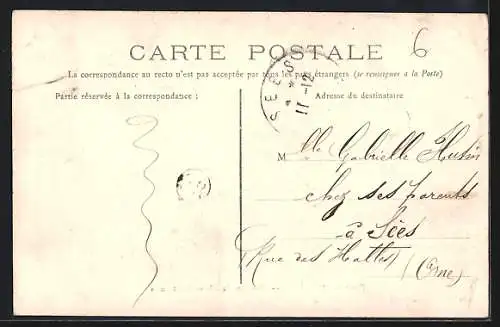 6
CARTE POSTALE
La correspondance au recto n'est pas acceptée par tous les pays étrangers (se renseigner à la Poste)
Partie réservée à la correspondance :
Adresse du destinataire
SEES
11-12
Mlle Gabrielle Hutin
chez ses parents
à Sées
Rue des Halles
(Orne)